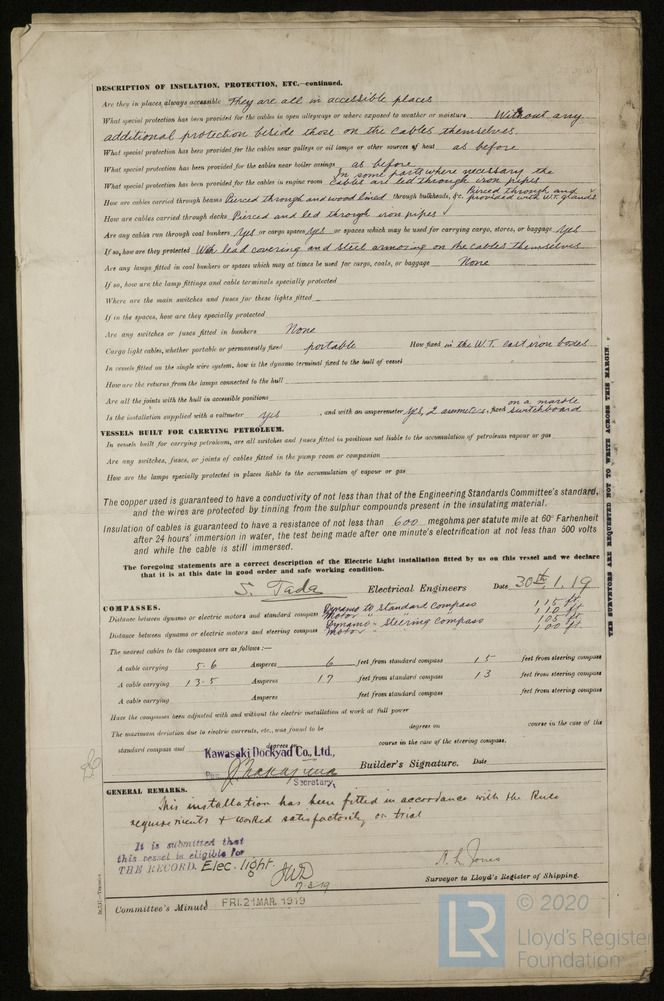 DESCRIPTION OF INSULATION, PROTECTION, ETC.—continued.
Are they in places always accessible They are all in accessible places
What special protection has been provided for the cables in open alleyways or where exposed to weather or moisture Without any
additional protection beside those on the cables themselves
What special protection has been provided for the cables near galleys or oil lamps or other sources of heat as before
What special protection has been provided for the cables near boiler casings as before
What special protection has been provided for the cables in engine room In some parts where necessary the cables are led through iron pipes
How are cables carried through beams Pierced through and wood lined through bulkheads, &c. Pierced through and provided with W.T. glands
How are cables carried through decks Pierced and led through iron pipes
Are any cables run through coal bunkers Yes or cargo spaces yes or spaces which may be used for carrying cargo, stores, or baggage yes
If so, how are they protected With lead covering and steel armoring on the cables themselves
Are any lamps fitted in coal bunkers or spaces which may at times be used for cargo, coals, or baggage None
If so, how are the lamp fittings and cable terminals specially protected
Where are the main switches and fuses for these lights fitted
If in the spaces, how are they specially protected
Are any switches or fuses fitted in bunkers None
Cargo light cables, whether portable or permanently fixed portable How fixed in the W.T. cast iron boxes
In vessels fitted on the single wire system, how is the dynamo terminal fixed to the hull of vessel
How are the returns from the lamps connected to the hull
Are all the joints with the hull in accessible positions
Is the installation supplied with a voltmeter yes , and with an amperemeter yes, 2 ammeters, fixed on a marble switchboard
VESSELS BUILT FOR CARRYING PETROLEUM.
In vessels built for carrying petroleum, are all switches and fuses fitted in positions not liable to the accumulation of petroleum vapour or gas
Are any switches, fuses, or joints of cables fitted in the pump room or companion
How are the lamps specially protected in places liable to the accumulation of vapour or gas
The copper used is guaranteed to have a conductivity of not less than that of the Engineering Standards Committee's standard,
and the wires are protected by tinning from the sulphur compounds present in the insulating material.
Insulation of cables is guaranteed to have a resistance of not less than 600 megohms per statute mile at 60° Farhenheit
after 24 hours' immersion in water, the test being made after one minute's electrification at not less than 500 volts
and while the cable is still immersed.
The foregoing statements are a correct description of the Electric Light installation fitted by us on this vessel and we declare
that it is at this date in good order and safe working condition.
S. Tada Electrical Engineers Date 30th, 1, 19
COMPASSES.
Distance between dynamo or electric motors and standard compass Dynamo to Standard compass 115 ft.
Motor " " 110 ft.
Distance between dynamo or electric motors and steering compass Dynamo - Steering compass 105 ft.
Motor - " 100 ft.
The nearest cables to the compasses are as follows:—
A cable carrying 5-6 Amperes 6 feet from standard compass 15 feet from steering compass
A cable carrying 13-5 Amperes 17 feet from standard compass 13 feet from steering compass
A cable carrying Amperes feet from standard compass feet from steering compass
Have the compasses been adjusted with and without the electric installation at work at full power
The maximum deviation due to electric currents, etc., was found to be degrees on course in the case of the
standard compass and degrees on course in the case of the steering compass.
Kawasaki Dockyad Co., Ltd.,
Per J. Nakajima Builder's Signature. Date
Secretary,
GENERAL REMARKS.
This installation has been fitted in accordance with the Rule
requirements & worked satisfactorily on trial
It is submitted that
this vessel is eligible for
THE RECORD. Elec. light.
JWD
7-3-19
A. L. Jones
Surveyor to Lloyd's Register of Shipping.
Committee's Minute FRI. 21 MAR. 1919
THE SURVEYORS ARE REQUESTED NOT TO WRITE ACROSS THIS MARGIN
LR
© 2020
Lloyd's Register
Foundation